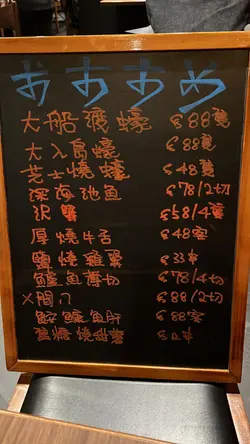 おすすめ
大船渡蠔 $88隻
大入島蠔 $88隻
芝士燒蠔 $48隻
深海池魚 $78/2切
沢蟹 $58/4隻
厚燒牛舌 $48客
鹽燒雞 $33串
魚薄切 $78/4切
$88/2切
鮟鱇魚肝 $88客
燒